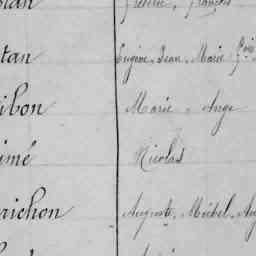 tan Eugène, Jean, Marie
ibon Marie, Ange
imé Nicolas
richon Auguste, Michel, Aug